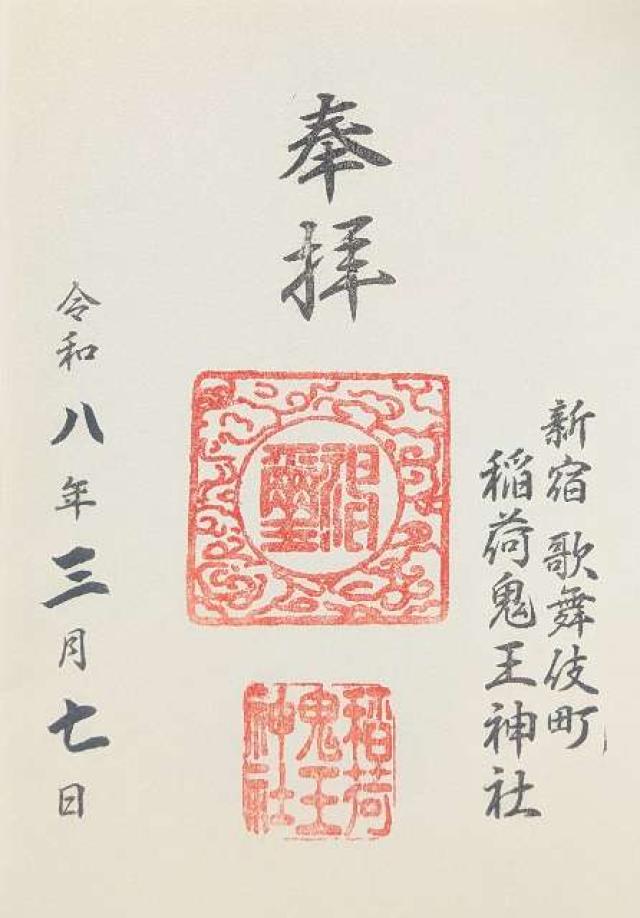 奉拝
新宿 歌舞伎町
稲荷鬼王神社
稲荷
鬼王
神社
令和八年三月七日